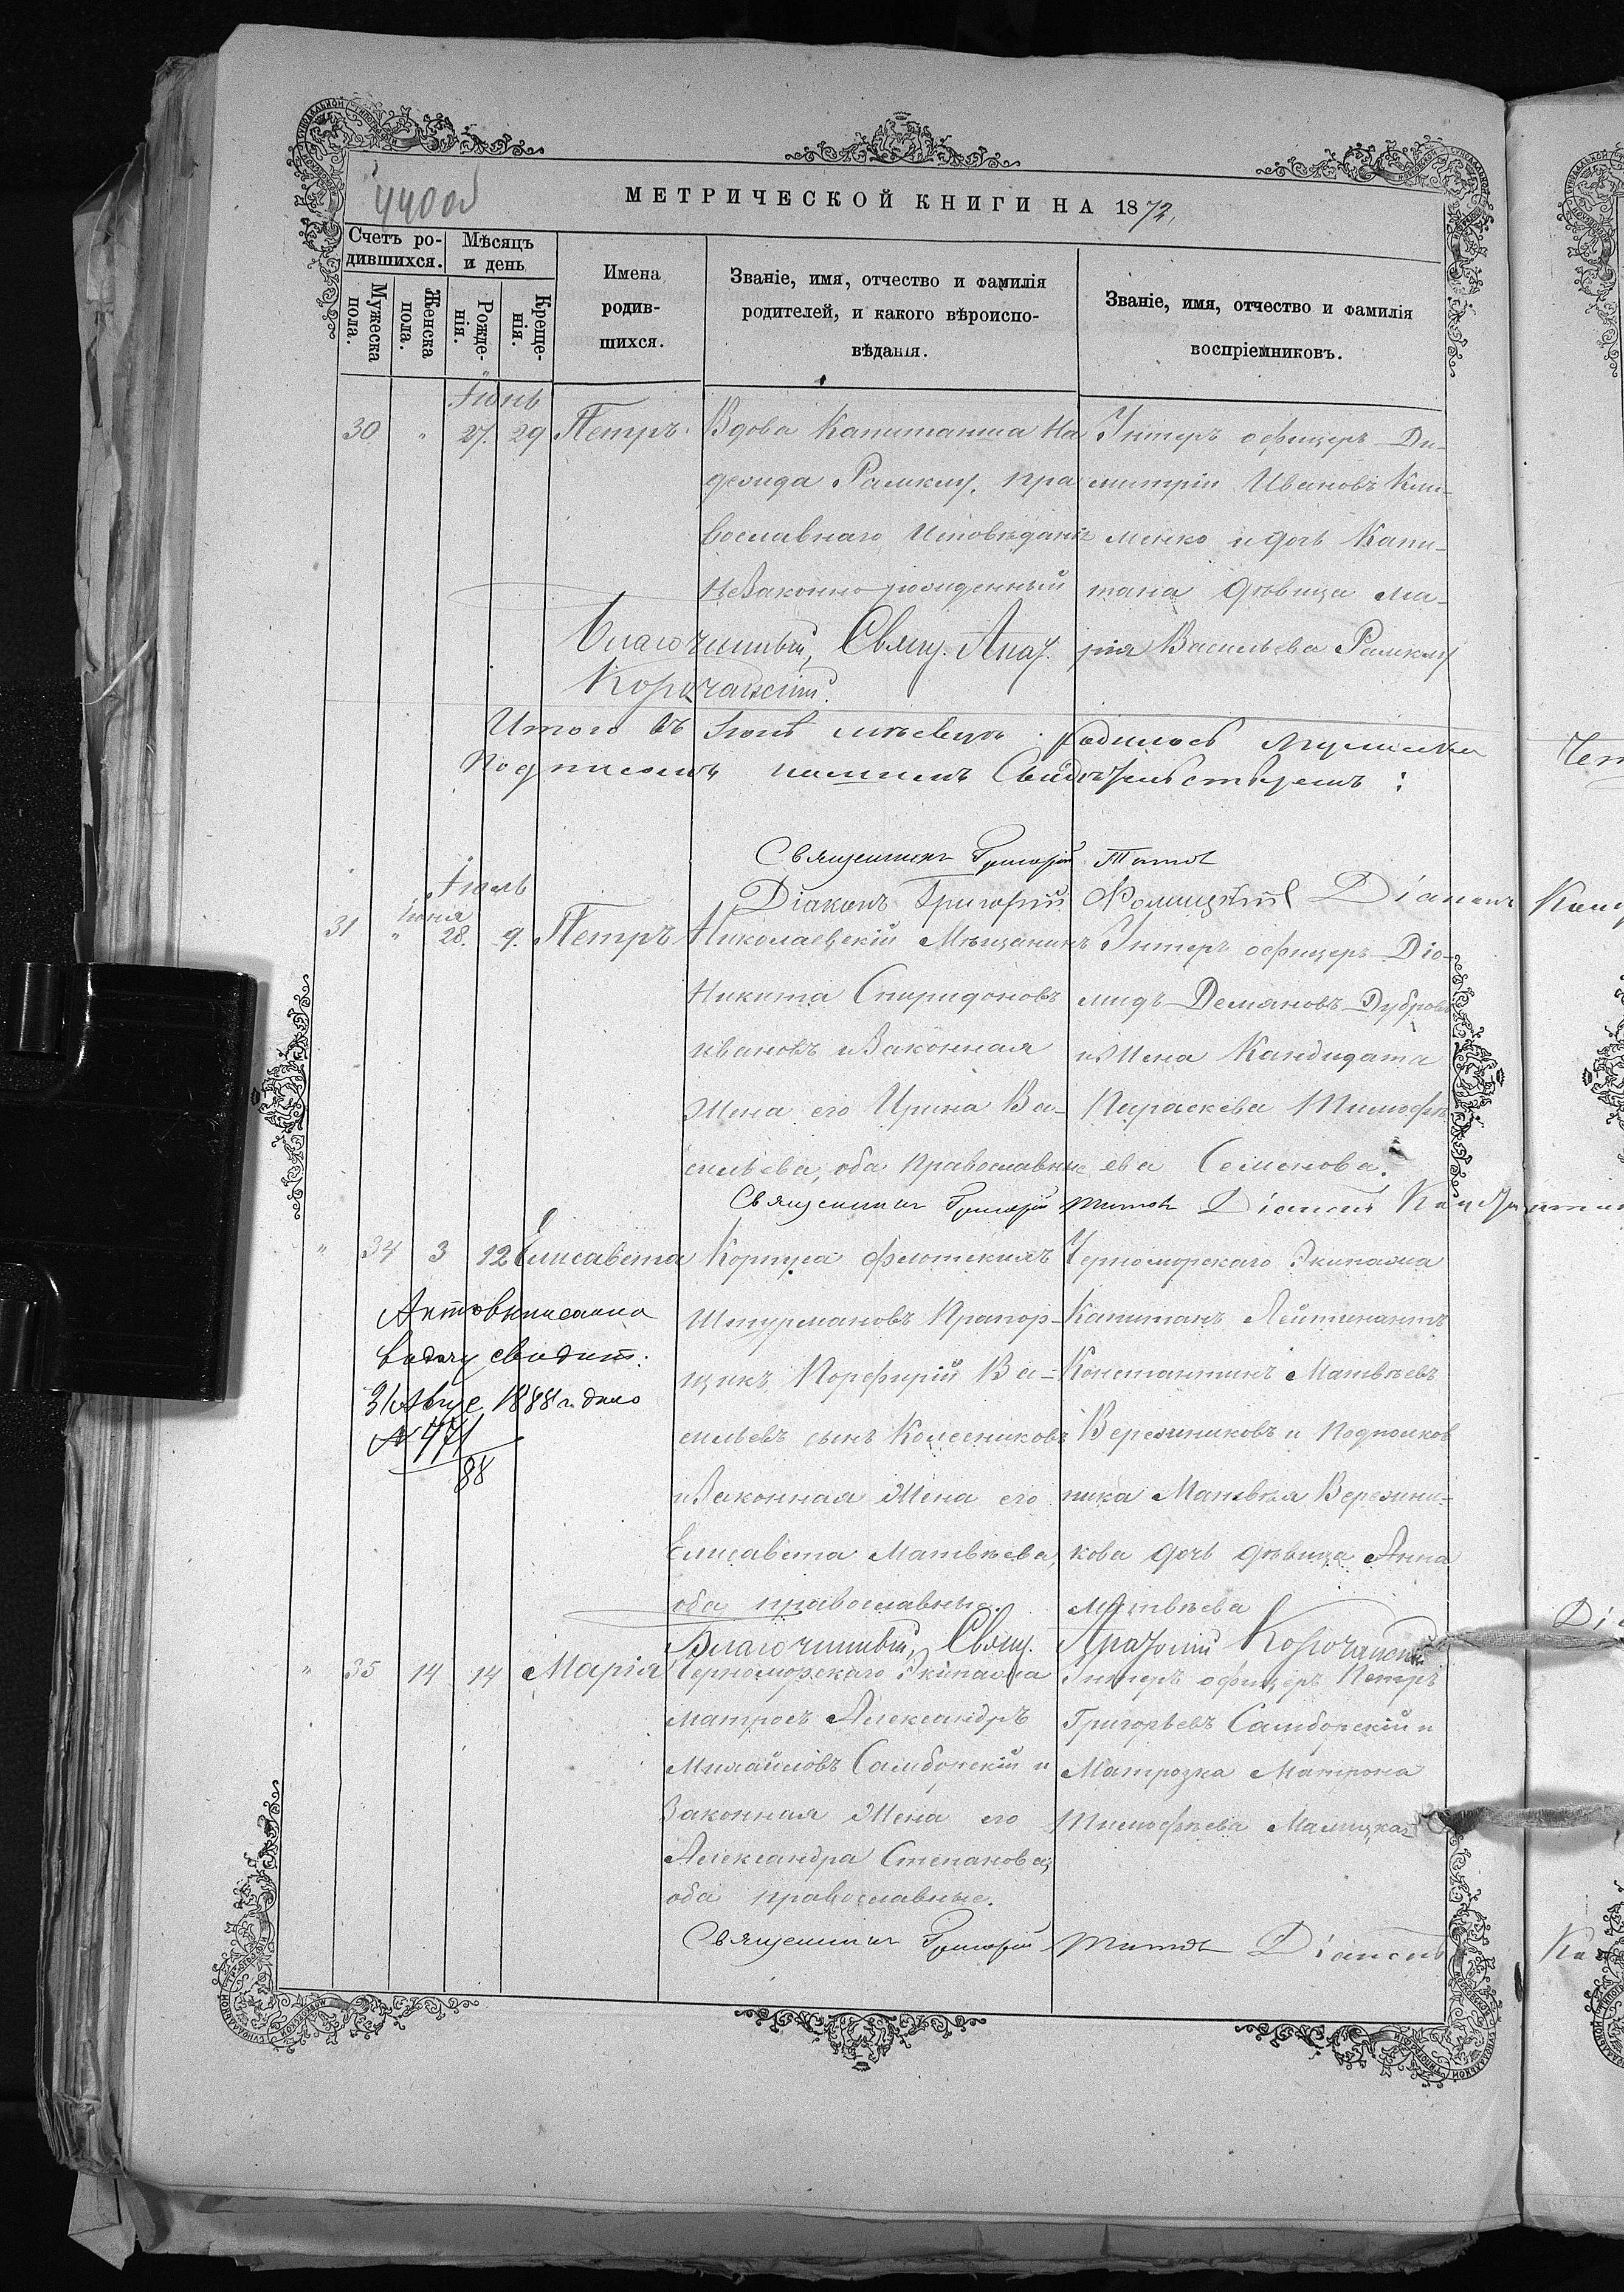 440 об
МЕТРИЧЕСКОЙ КНИГИ НА 1872,
Счетъ ро-
дившихся.
Мужеска
пола.
Женска
пола.
Мѣсяцъ
и день
Рожде-
нія.
Креще-
нія.
Имена
родив-
шихся.
Званіе, имя, отчество и фамилія
родителей, и какого вѣроиспо-
вѣданія.
Званіе, имя, отчество и фамилія
воспріемниковъ.
Іюнь
30 " 27. 29 Петръ.
Вдова Капитанша На
дежда Рамкъ. пра
вославнаго Исповѣданія
незаконно рожденный
Унтеръ офицеръ Ди-
митрій Ивановъ Кли-
менко и дочь Капи-
тана дѣвица Ма-
рія Васильева
Благочинный, Свящ.
Корочанскій.
Итого въ Іюнѣ мѣсяцѣ родилось мужеска
Подписомъ нашимъ Свидѣтельствуемъ:
Священникъ Григорій Титовъ
Діаконъ Григорій Діаконъ
Іюль
31 " Іюня 28. 9. Петръ
Николаевскій Мѣщанинъ
Никита Спиридоновъ
Ивановъ и Законная
Жена его Ирина Ва-
сильева, оба Православные
Унтеръ офицеръ Діо-
мидъ Демяновъ Дубровъ
и Жена Кандидата
Параскева Тимофѣ
ева Семенова.
Священникъ Григорій Титовъ Діаконъ
" 34 3 12 Елисавета
Корпуса флотскихъ
Штурмановъ Прапор-
щикъ Порфирій Ва-
сильевъ сынъ Колесниковъ
и Законная Жена его
Елисавета Матвѣева,
оба православные.
Черноморскаго Экипажа
Капитанъ Лейтинантъ
Константинъ Матвѣевъ
Вережниковъ и Подполков
ника Матвѣя Вережни-
кова дочь дѣвица Анна
Матвѣева
свидѣт.
31 Авгус. 1888 г. дано
№ 471
88
Благочинный, Свящ. Корочанскій
" 35 14 14 Марія
Черноморскаго Экипажа
Матросъ Александръ
Михайловъ Самборскій и
Законная Жена его
Александра Степанова,
оба православные.
Унтеръ офицеръ Петръ
Григорьевъ Самборскій и
Матрозка Матрона
Тимофѣева Малицкая
Священникъ Григорій Титовъ Діаконъ